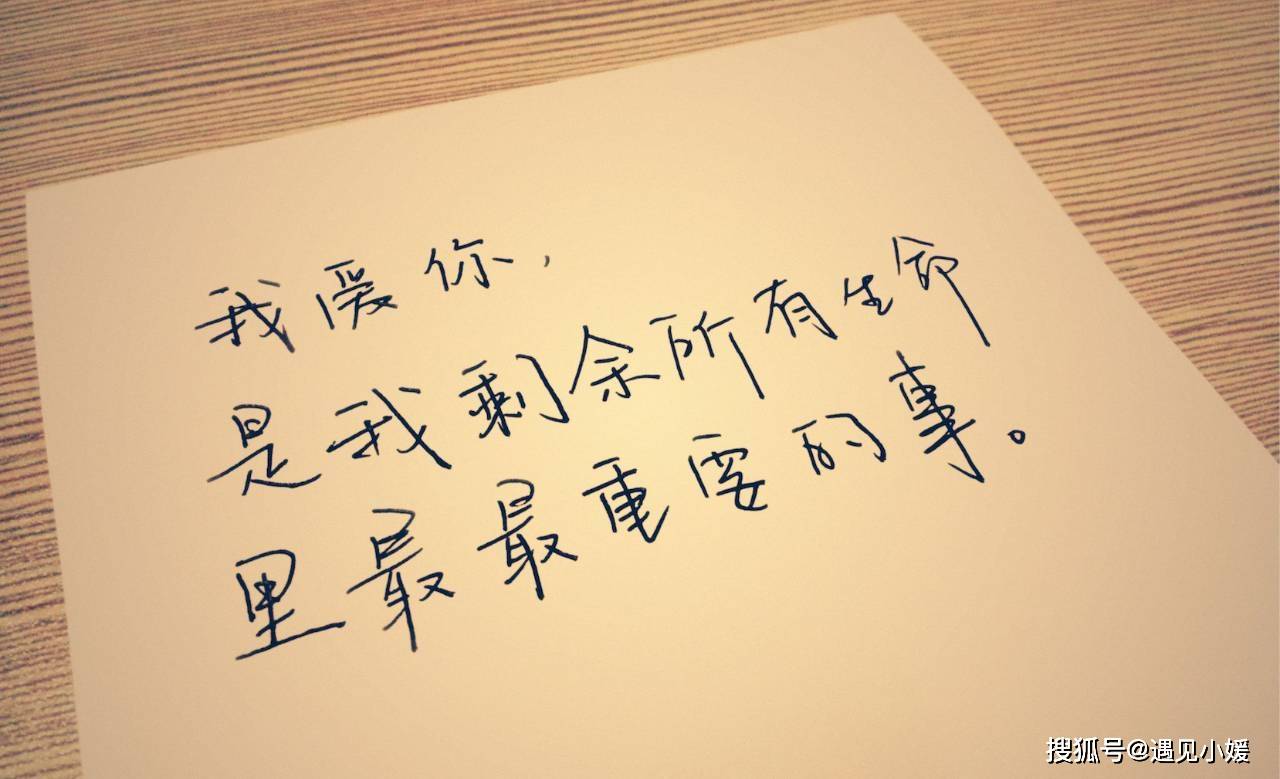 我爱你,
是我剩余所有生命
里最最重要的事。
搜狐号@遇见小媛